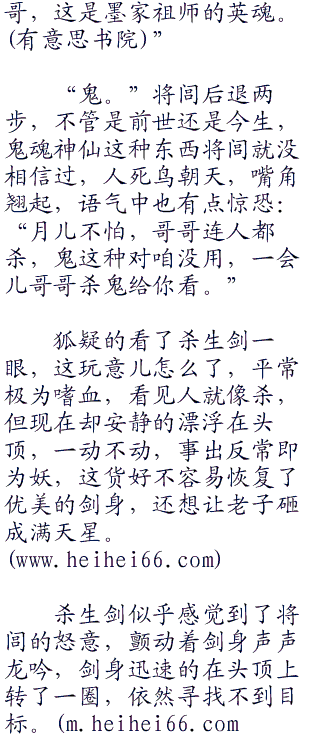 哥，这是墨家祖师的英魂。
(有意思书院)”
“鬼。”将闾后退两
步，不管是前世还是今生，
鬼魂神仙这种东西将闾就没
相信过，人死鸟朝天，嘴角
翘起，语气中也有点惊恐：
“月儿不怕，哥哥连人都
杀，鬼这种对咱没用，一会
儿哥哥杀鬼给你看。”
狐疑的看了杀生剑一
眼，这玩意儿怎么了，平常
极为嗜血，看见人就像杀，
但现在却安静的漂浮在头
顶，一动不动，事出反常即
为妖，这货好不容易恢复了
优美的剑身，还想让老子砸
成满天星。
(www.heihei66.com)
杀生剑似乎感觉到了将
闾的怒意，颤动着剑身声声
龙吟，剑身迅速的在头顶上
转了一圈，依然寻找不到目
标。(m.heihei66.com